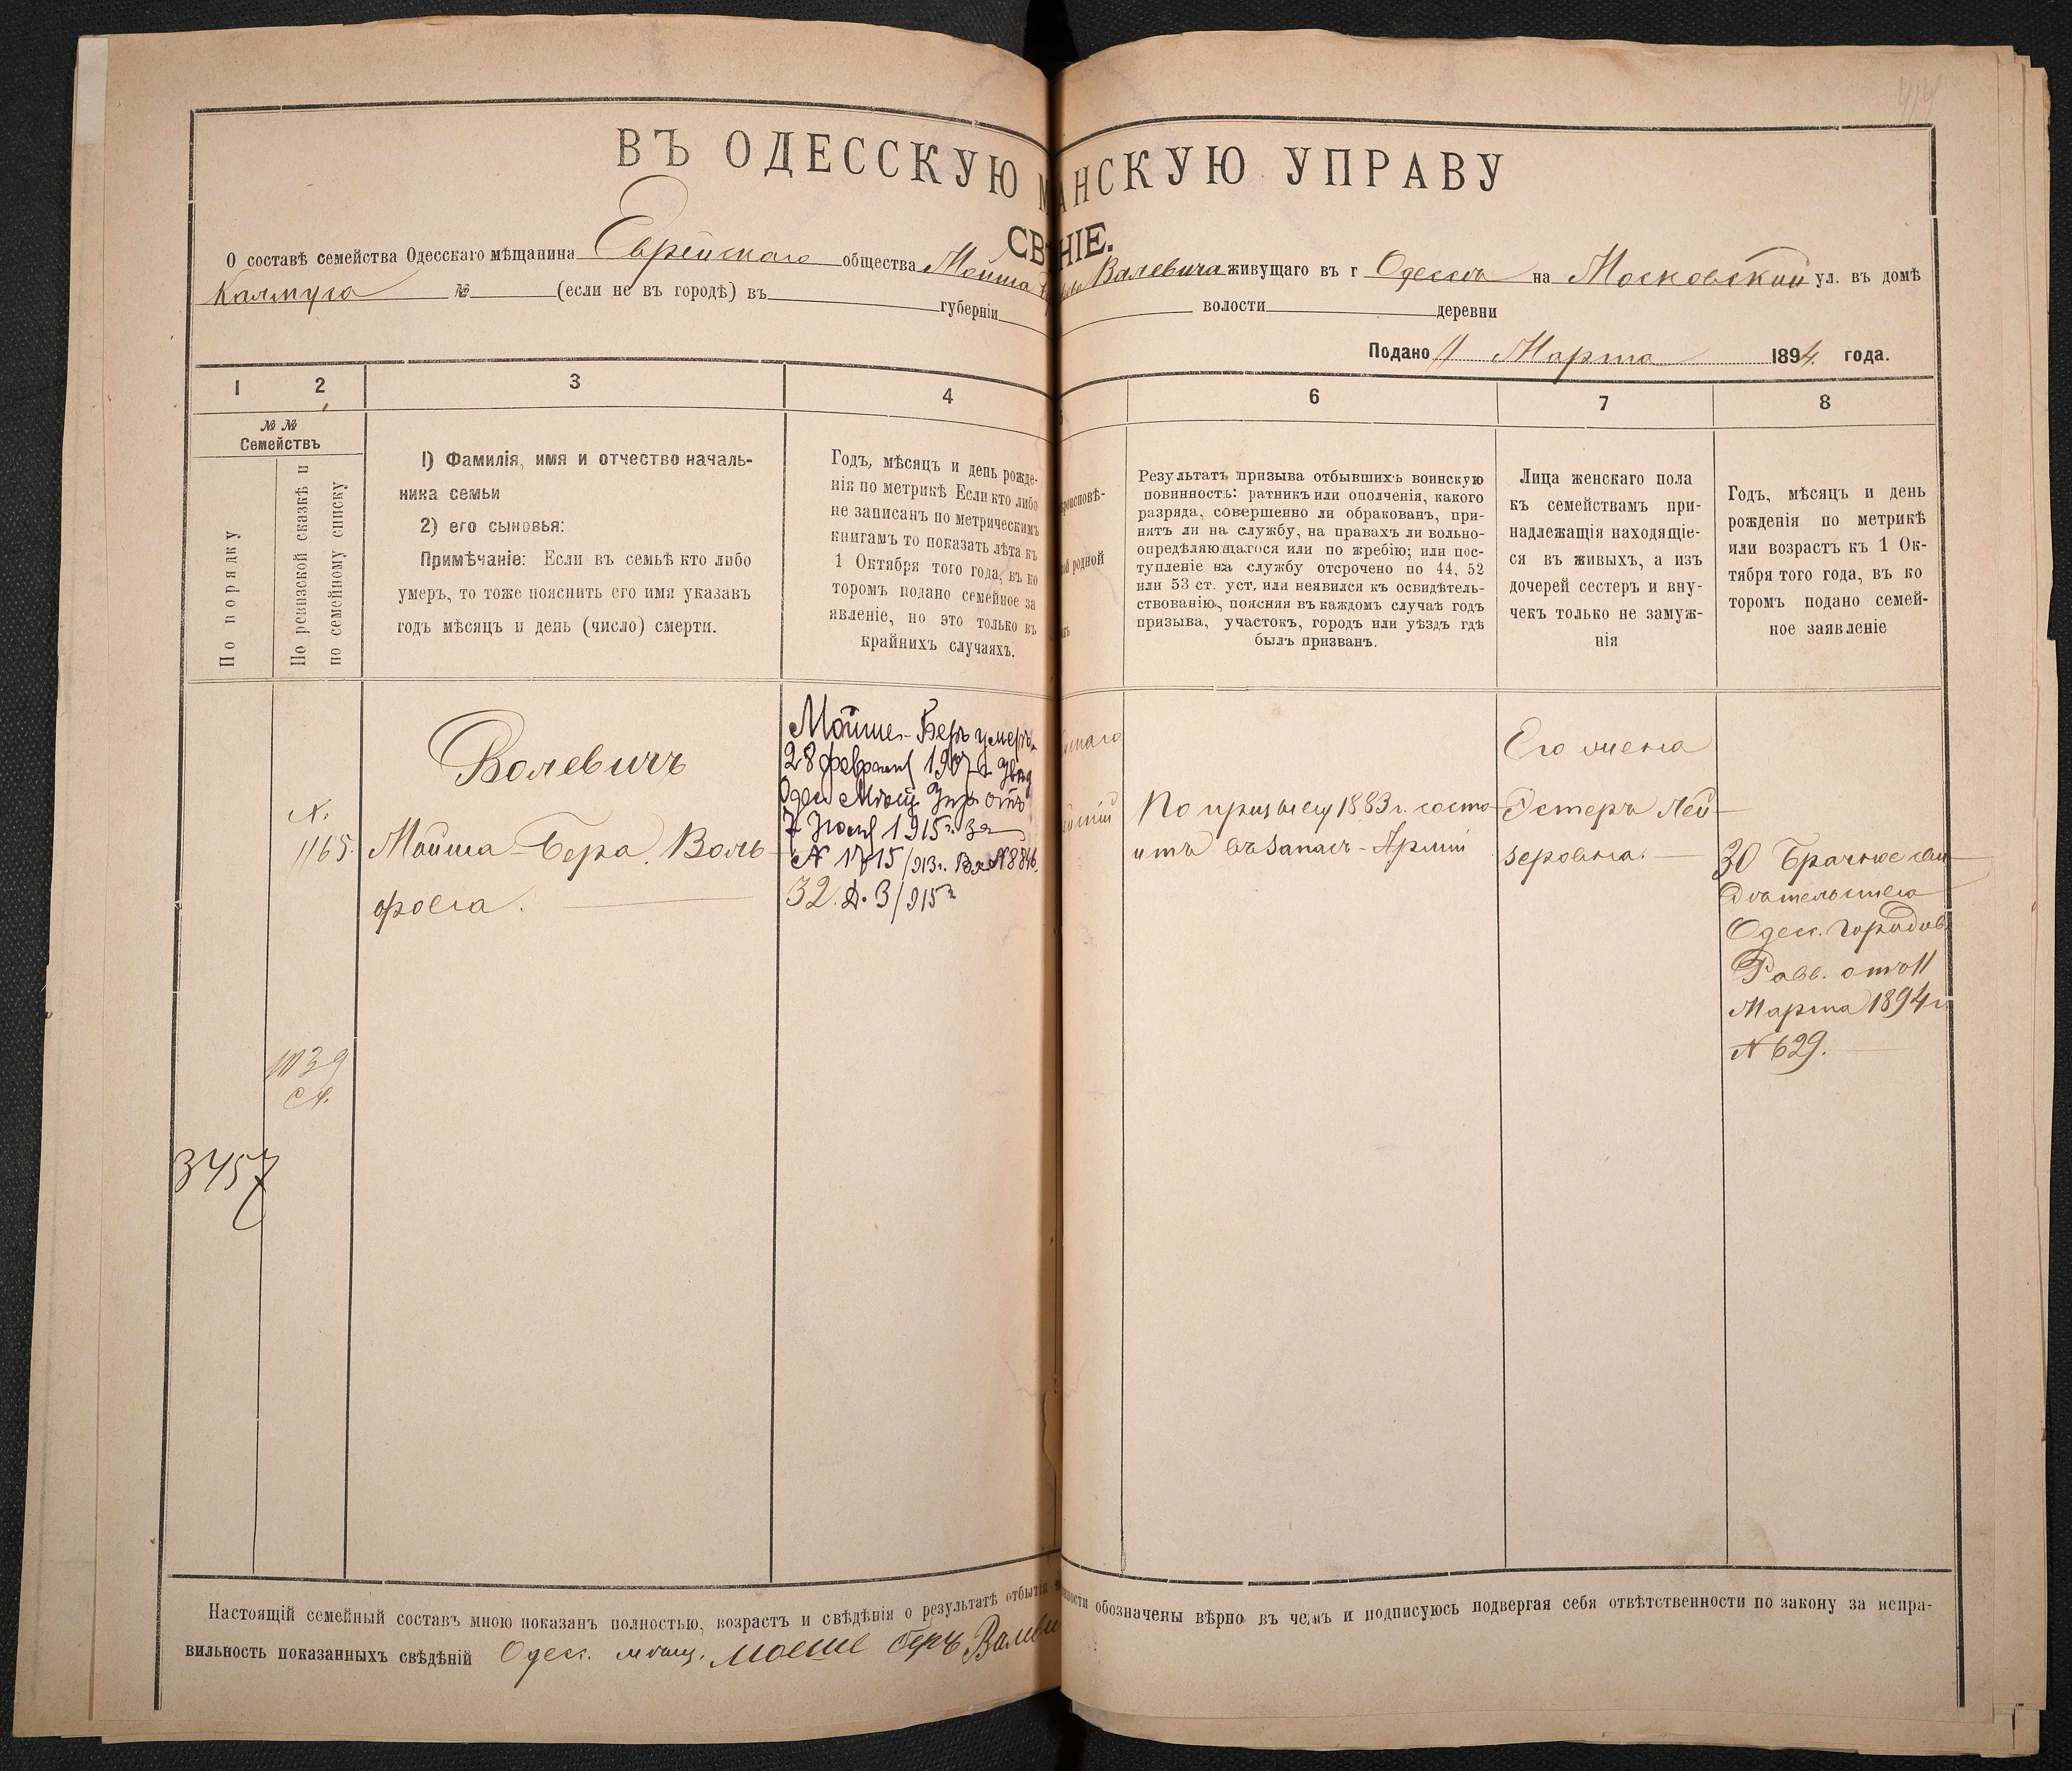 414
ВЪ ОДЕССКУЮ М АНСКУЮ УПРАВУ
СВ НІЕ.
О составѣ семейства Одесскаго мѣщанина Еврейскаго общества Мойша Валевича живущаго въ г Одессѣ на Московской ул. въ домѣ
Калмуса № (если не въ городѣ) въ губерніи волости деревни
Подано 11 Марта 1894 года.
1 2 3 4 6 7 8
№ №
Семействъ
По порядку
По ревизской сказкѣ и
по семейному списку
1) Фамилія, имя и отчество началь-
ника семьи
2) его сыновья:
Примѣчаніе: Если въ семьѣ кто либо
умеръ, то тоже пояснить его имя указавъ
годъ мѣсяцъ и день (число) смерти.
Годъ, мѣсяцъ и день рожде-
нія по метрикѣ Если кто либо
не записанъ по метрическимъ
книгамъ то показать лѣта къ
1 Октября того года, въ ко
торомъ подано семейное за
явленіе, но это только въ
крайнихъ случаяхъ.
роисповѣ-
ой родной
Результатъ призыва отбывшихъ воинскую
повинность: ратникъ или ополченія, какого
разряда, совершенно ли обракованъ, при-
нятъ ли на службу, на правахъ ли вольно-
опредѣляющагося или по жребію; или пос-
тупленіе на службу отсрочено по 44, 52
или 53 ст. уст, или неявился къ освидѣтель-
ствованію, поясняя въ каждомъ случаѣ годъ
призыва, участокъ, городъ или уѣздъ гдѣ
былъ призванъ.
Лица женскаго пола
къ семействамъ при-
надлежащія находящіе-
ся въ живыхъ, а изъ
дочерей сестеръ и вну-
чекъ только не замуж-
нія
Годъ, мѣсяцъ и день
рожденія по метрикѣ
или возрастъ къ 1 Ок-
тября того года, въ ко
торомъ подано семей-
ное заявленіе
N.
1165.
3457
Валевичъ
Мойша-Бера Воль-
фовъ.
Мойше-Беръ умеръ
28 февраля 1907 г.
Одес Мѣщ Упр отъ
7 Іюля 1915 г. за
N 1715/913 г. N 8846.
32 Д. 3/915 г
По призыву 1883 г. состо-
итъ въ запасѣ Арміи
Его жена
Эстеръ Лей-
зеровна.
30 Брачное сви-
дѣтельство
Одес. Городов.
Равв. отъ 11
Марта 1894 г.
N 629.
Настоящій семейный составъ мною показанъ полностью, возрастъ и свѣдѣнія о результатѣ отбыті нности обозначены вѣрно въ чемъ и подписуюсь подвергая себя отвѣтственности по закону за непра-
вильность показанныхъ свѣдѣній Одес. мѣщ. Моеше Беръ Валеви